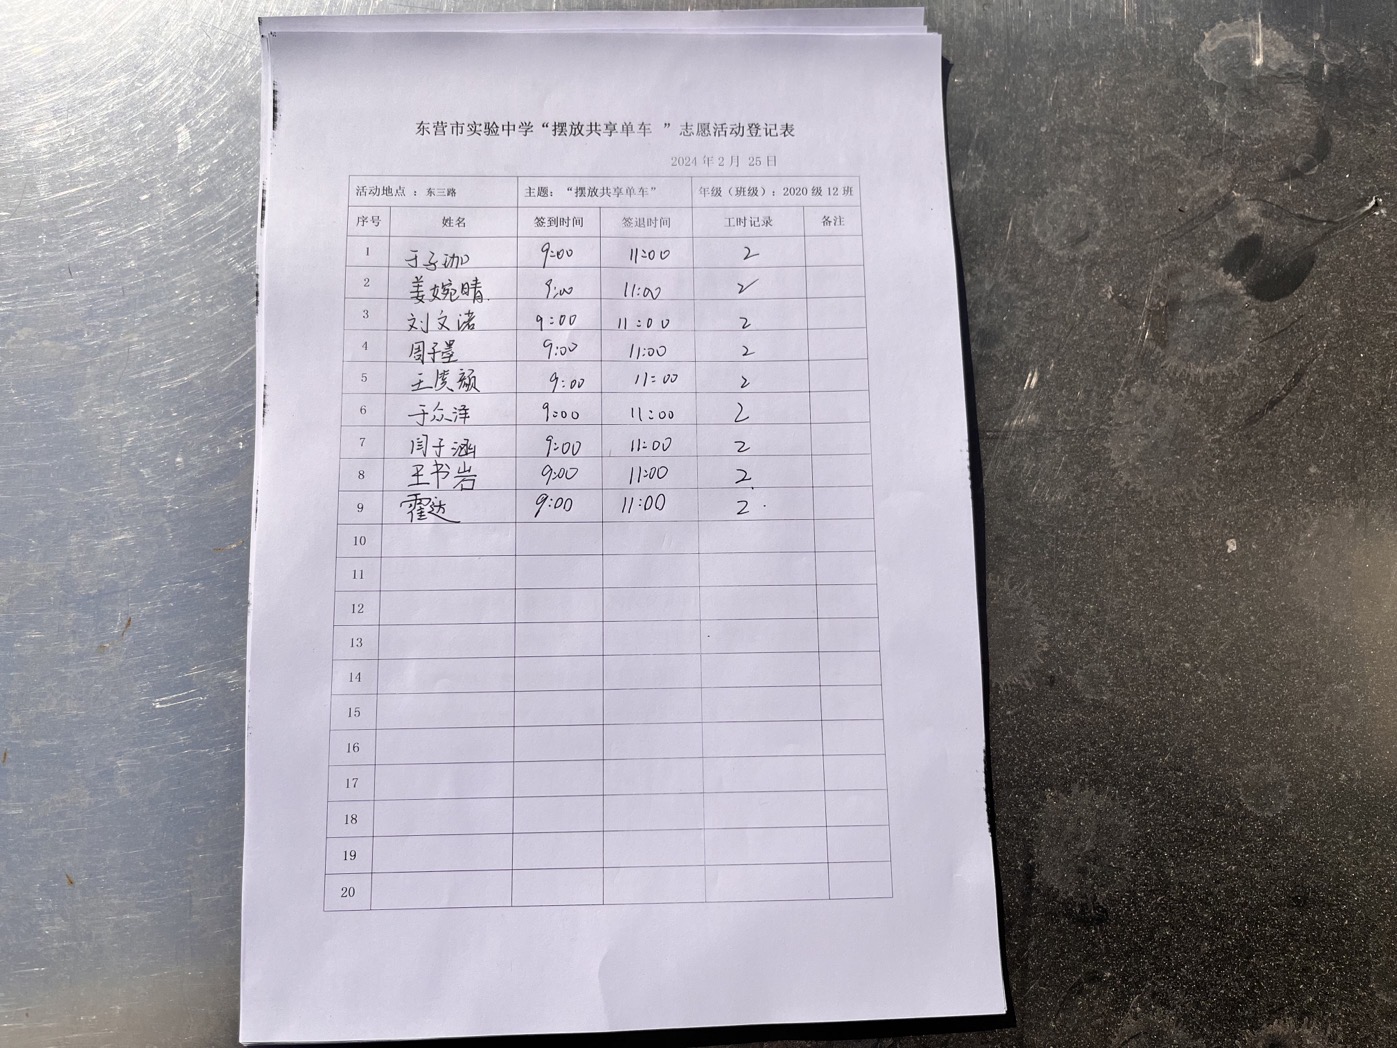 东营市实验中学“摆放共享单车 ”志愿活动登记表
2024 年 2 月 25 日
活动地点 ：东三路 主题：“摆放共享单车” 年级（班级）：2020 级 12 班
序号 姓名 签到时间 签退时间 工时记录 备注
1 于子珈 9:00 11:00 2
2 姜婉晴 9:00 11:00 2
3 刘文渚 9:00 11:00 2
4 周子墨 9:00 11:00 2
5 王 颜 9:00 11:00 2
6 于众泽 9:00 11:00 2
7 闫子涵 9:00 11:00 2
8 王书岩 9:00 11:00 2
9 霍达 9:00 11:00 2
10
11
12
13
14
15
16
17
18
19
20